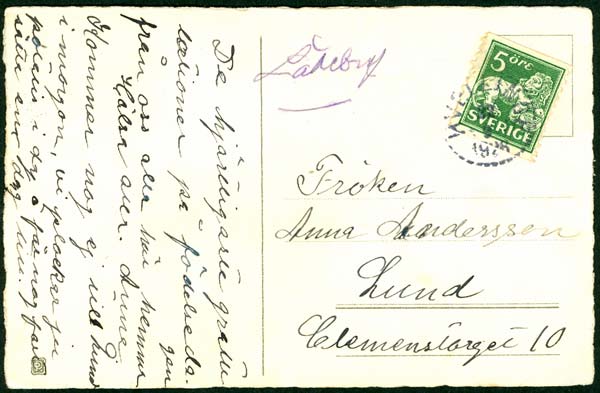 De hjärtligaste gratu
lationer på födelseda-
gen
från oss alla här hemma
Hälsa alla. Anna
Kommer nog ej till Lund
i morgon, vi plockar ju
i dy
Ladeby
5 ÖRE
SVERIGE
Fröken
Anna Anderssen
Lund
Clemenstorget 10